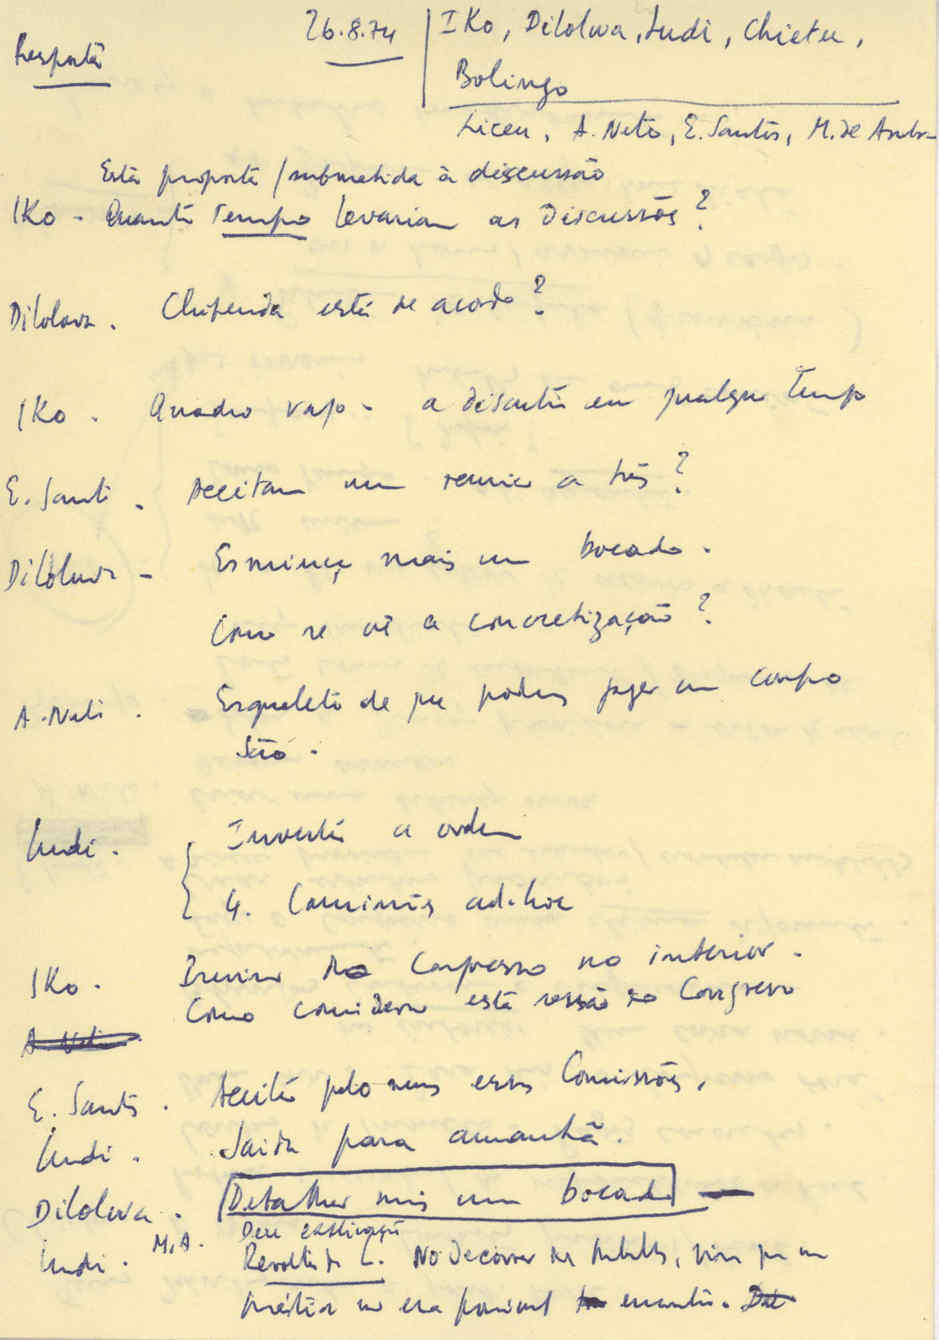 Resposta
26.8.74
IKo, Dilolwa, Ludi, Chietu,
Bolingo
Liceu, A. Neto, E. Santos, M. de Andra
Está proposta / submetida à discussão
IKo - Quanto Tempo levariam as Discussões?
Dilolwa. Chipenda está de acordo?
IKo. Quadro vago - a discutir em qualquer tempo
E. Santos. Aceitam um reunião a três?
Dilolwa - Esmiuçar mais um bocado.
Como se vê a concretização?
A. Neto. Esqueleto de que podem fazer um corpo
são.
Ludi. Inverter a ordem
4. Comissões ad-hoc
IKo. Congresso no interior.
Como consideram esta sessão do Congresso
A. Neto.
E. Santos. Aceitar pelo menos essas Comissões.
Ludi. Saida para amanhã.
Dilolwa. Detalhar mais um bocado
Ludi. M.A. Deu esta
Revolta de L. No decorrer de, que
era possível encontro.